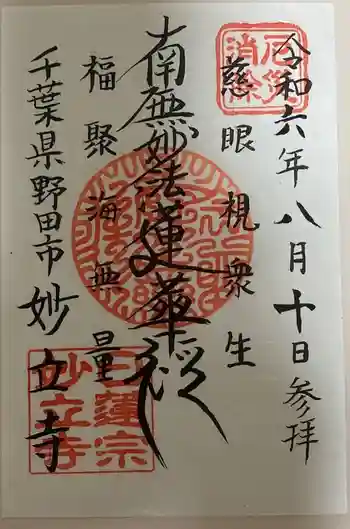 令和六年八月十日参拝
慈眼視衆生
南無妙法蓮華経
福聚海無量
千葉県野田市妙立寺
厄災消除
日蓮宗妙立寺